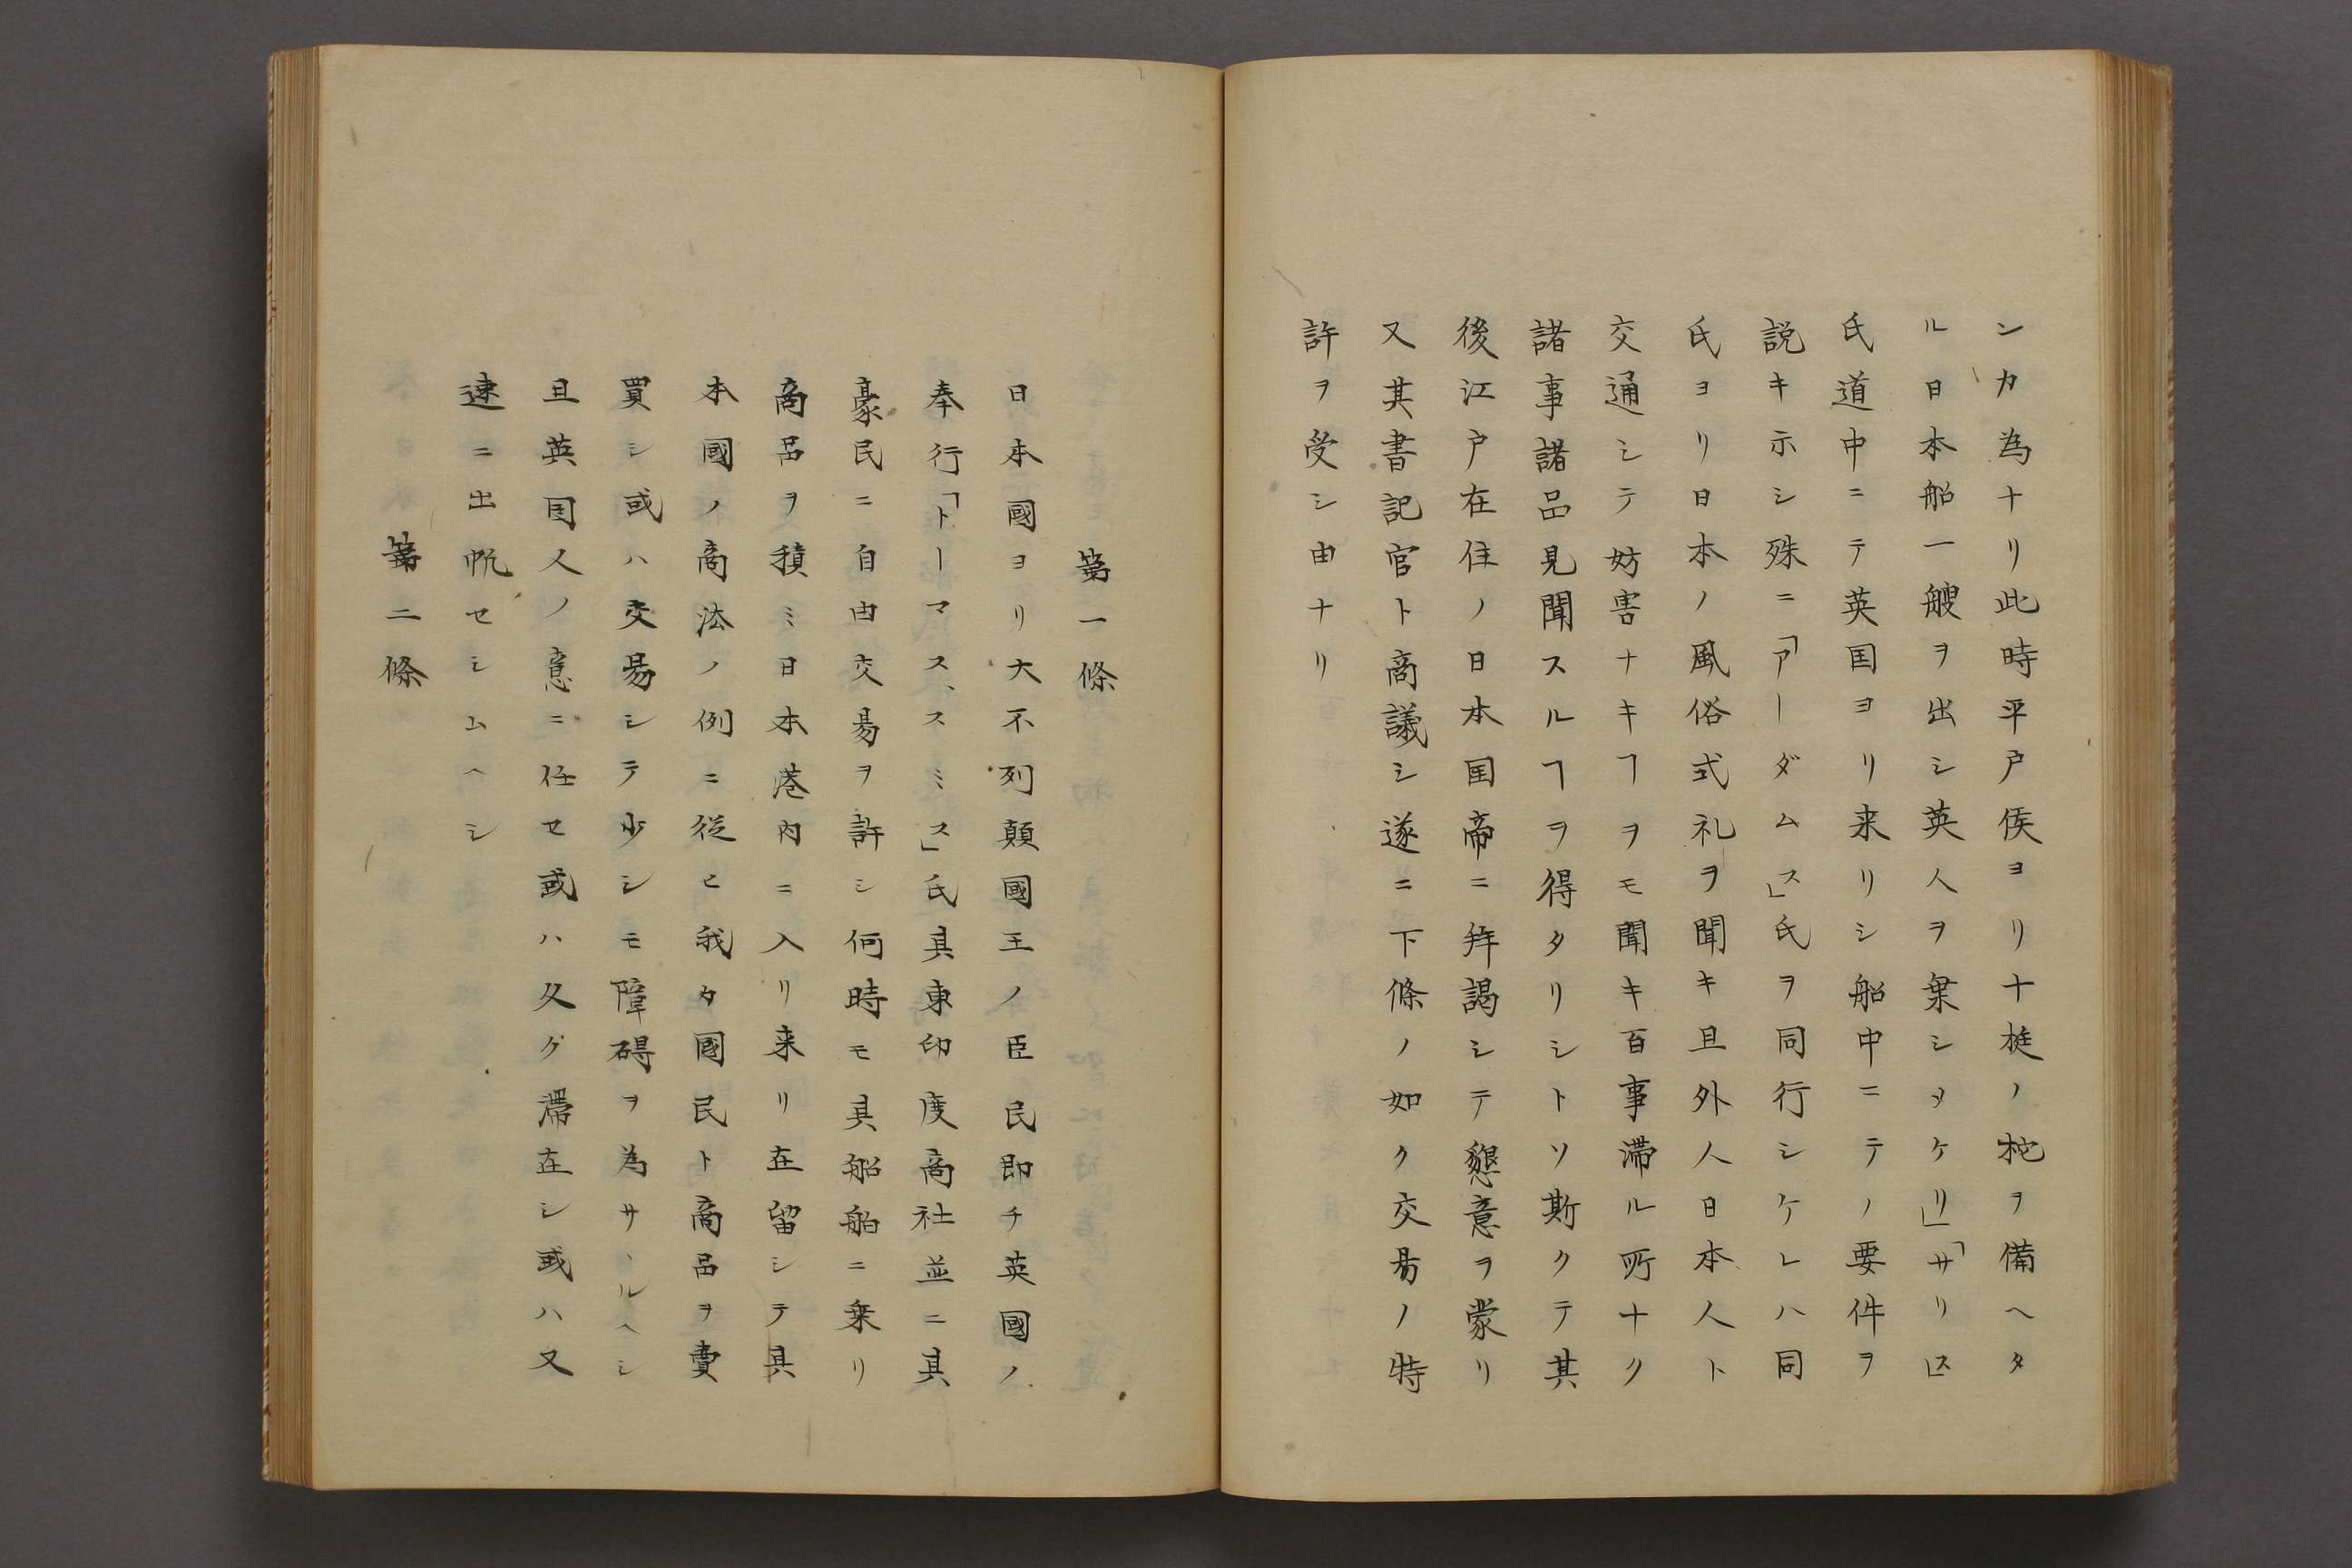 ンカ為ナリ此時平戸侯ヨリ十梃ノ柁ヲ備ヘタ
ル日本船一艘ヲ出シ英人ヲ乗シメケリ」「サリス」
氏道中ニテ英国ヨリ来リシ船中ニテノ要件ヲ
説キ示シ殊ニ「アーダムス」氏ヲ同行シケレハ同
氏ヨリ日本ノ風俗式礼ヲ聞キ且外人日本人ト
交通シテ妨害ナキヿヲモ聞キ百事滞ル所ナク
諸事諸品見聞スルヿヲ得タリシトソ斯クテ其
後江戸在住ノ日本国帝ニ拝謁シテ懇意ヲ蒙リ
又其書記官ト商議シ遂ニ下條ノ如ク交易ノ特
許ヲ受シ由ナリ
第一條
日本國ヨリ大不列顛國王ノ臣民即チ英國ノ
奉行「トーマスヽスミス」氏其東印度商社並ニ其
豪民ニ自由交易ヲ許シ何時モ其船舶ニ乗リ
商品ヲ積ミ日本港内ニ入リ来リ在留シテ其
本國ノ商法ノ例ニ従ヒ我タ國民ト商品ヲ賣
買シ或ハ交易シテ少シモ障碍ヲ為サヽルヘシ
且英国人ノ意ニ任セ或ハ久ク滞在シ或ハ又
速ニ出帆セシムヘシ
第二條